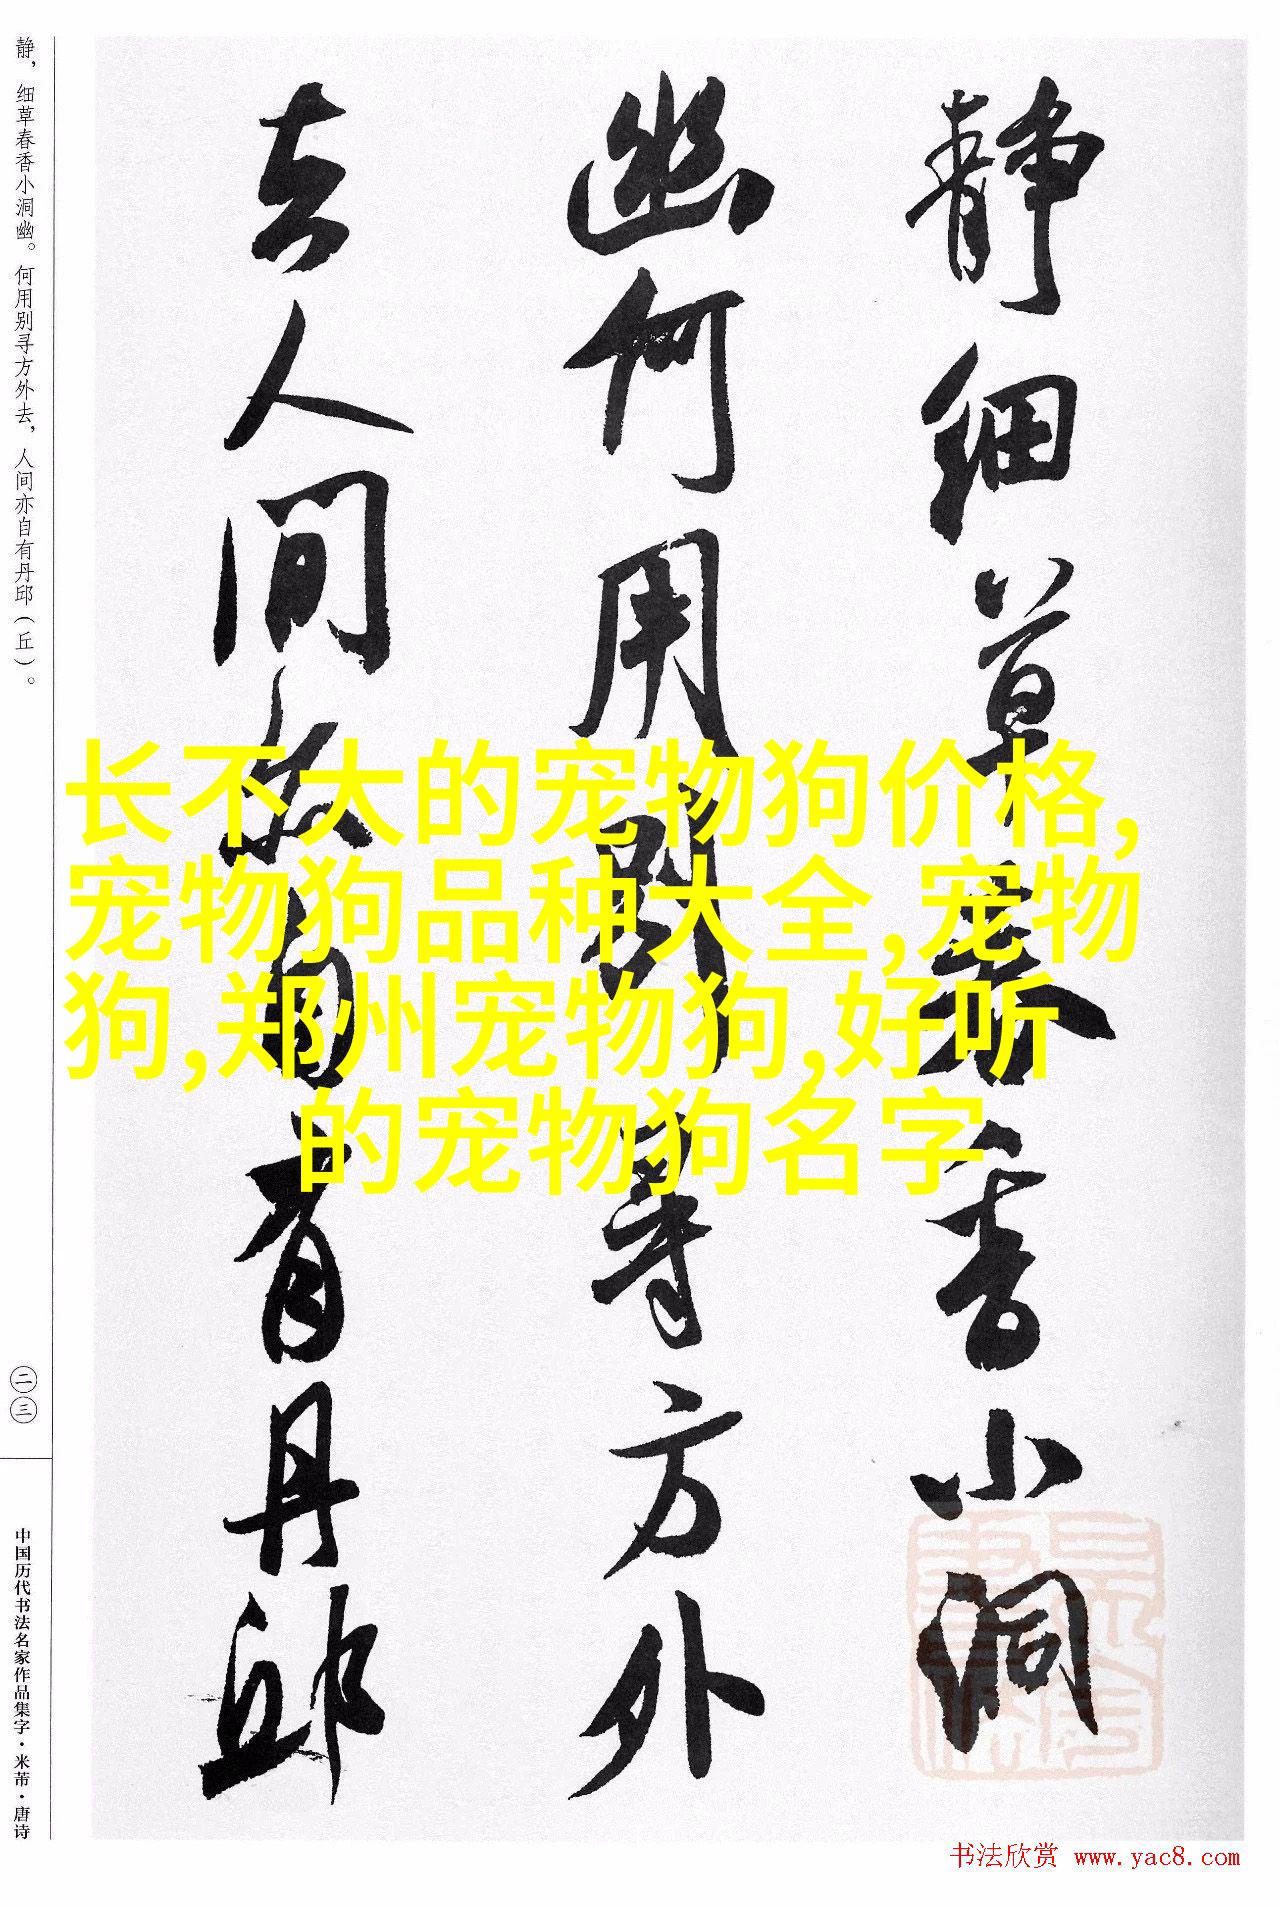 静，细草春香小洞幽。何用别寻方外去，人间亦自有丹邱（丘）。
二三
中国历代书法名家作品集字·米芾·唐诗
静细草春香小洞
幽何用别寻方外
去人间亦自有丹邱
长不大的宠物狗价格,
宠物狗品种大全,宠物
狗,郑州宠物狗,好听
的宠物狗名字
书法欣赏 www.yac8.com